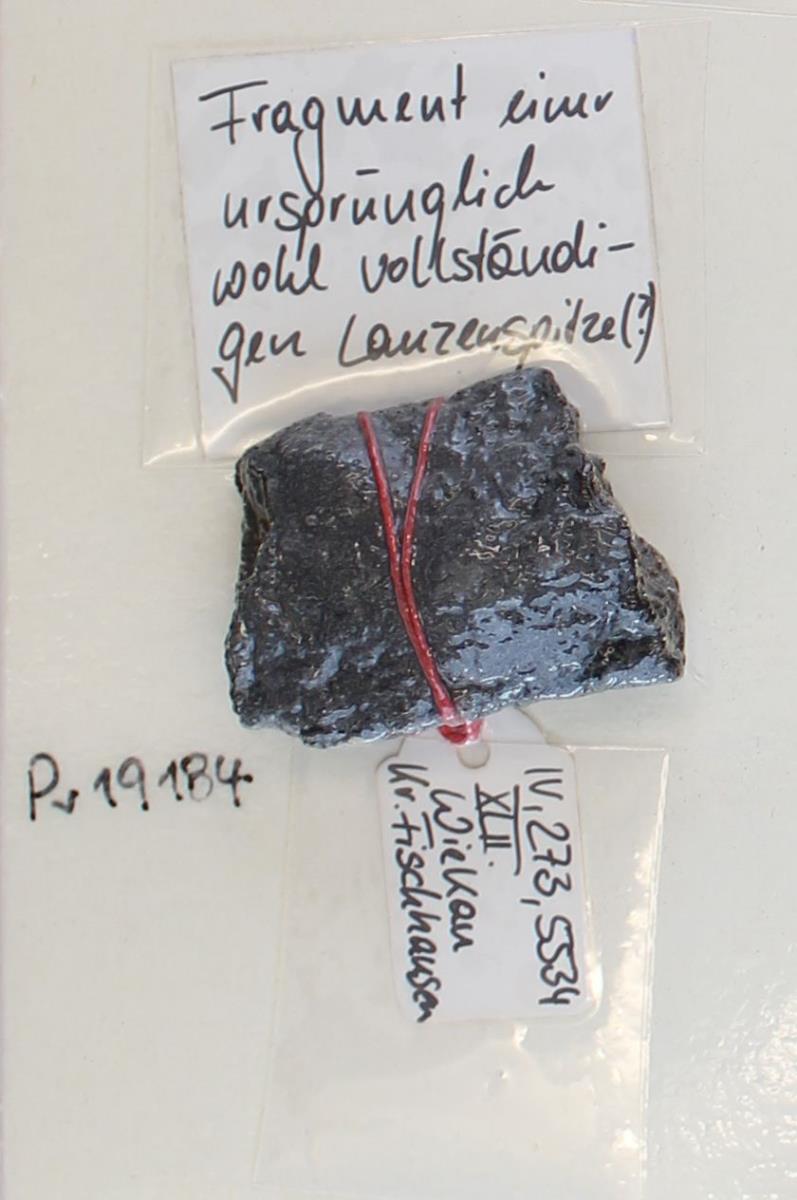 Fragment einer
ursprünglich
wohl vollständi-
gen Lanzenspitze(?)
Pr 19184
IV, 273, 5534
XLII.
Wiekau
Kr. Fischhausen